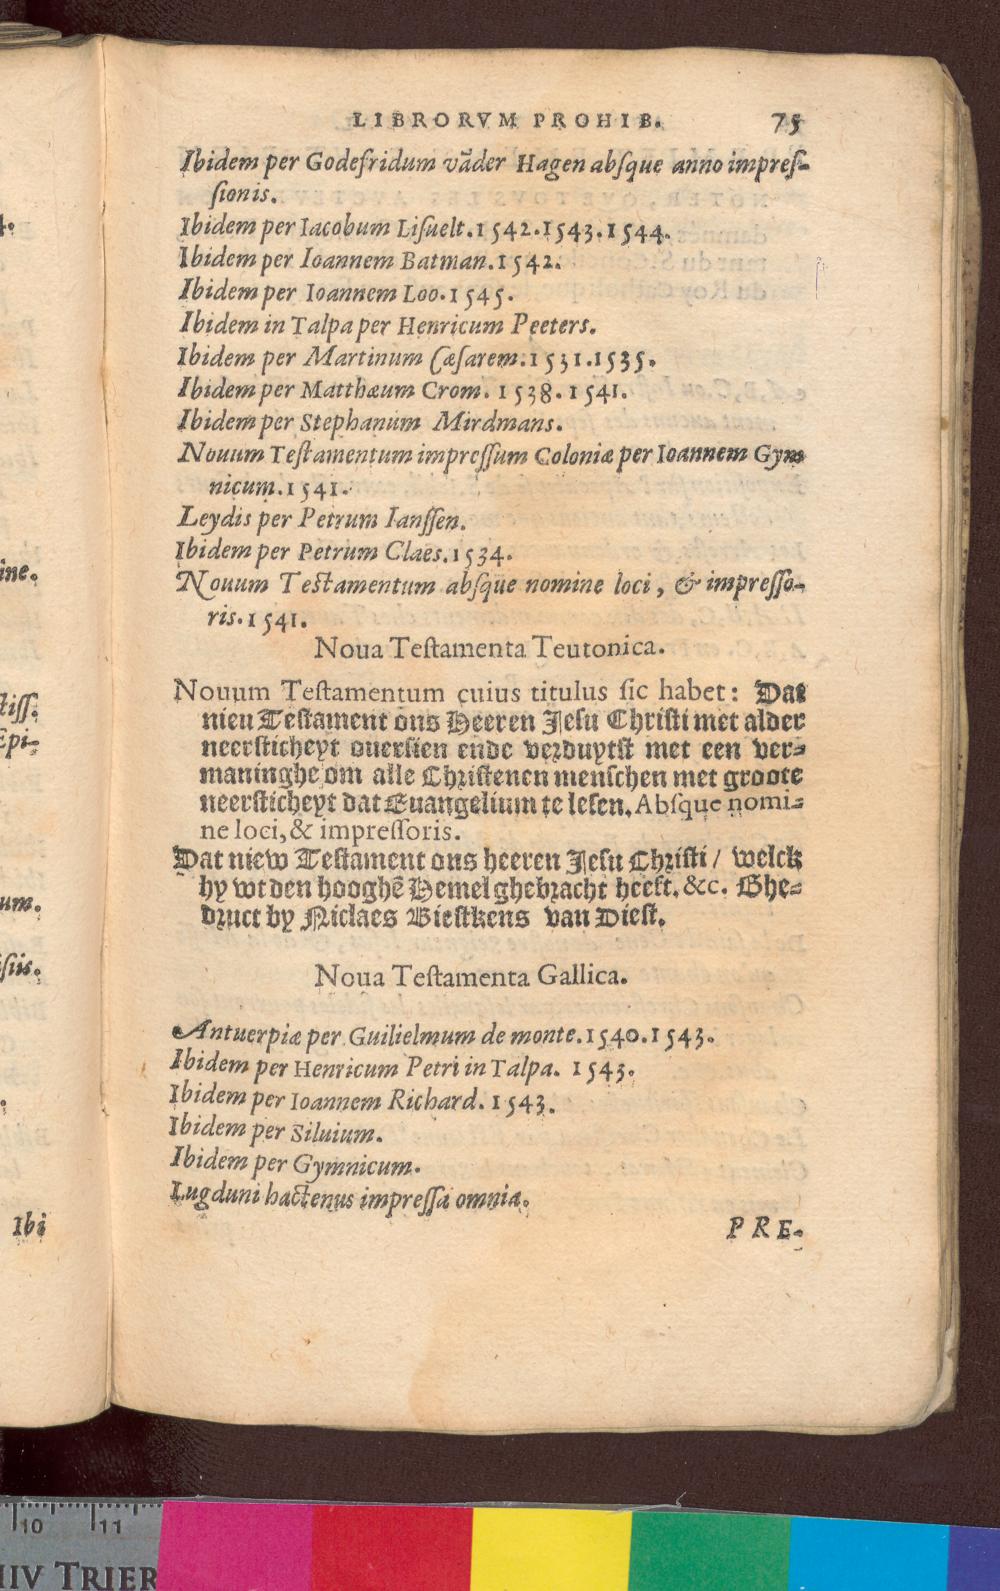 LIBRORVM PROHIB. 75
Ibidem per Godefridum vāder Hagen abſque anno impreſ-
ſionis.
Ibidem per Iacobum Liſuelt. 1542. 1543. 1544.
Ibidem per Ioannem Batman. 1542.
Ibidem per Ioannem Loo. 1545.
Ibidem in Talpa per Henricum Peeters.
Ibidem per Martinum Cæſarem. 1531. 1535.
Ibidem per Matthæum Crom. 1538. 1541.
Ibidem per Stephanum Mirdmans.
Nouum Teſtamentum impreſſum Coloniæ per Ioannem Gym
nicum. 1541.
Leydis per Petrum Ianſſen.
Ibidem per Petrum Claes. 1534.
Nouum Teſtamentum abſque nomine loci, & impreſſo-
ris. 1541.
Noua Teſtamenta Teutonica.
Nouum Teſtamentum cuius titulus ſic habet: Dat
nieu Teſtament ons Heeren Jeſu Chriſti met alder
neerſticheyt ouerſien ende verduytſt met een ver-
maninghe om alle Chriſtenen menſchen met groote
neerſticheyt dat Euangelium te leſen. Abſque nomi-
ne loci, & impreſſoris.
Dat niew Teſtament ons heeren Jeſu Chriſti / welck
hy wt den hooghē Hemel ghebracht heeft. &c. Ghe-
druct by Niclaes Bieſtkens van Dieſt.
Noua Teſtamenta Gallica.
Antuerpiæ per Guilielmum de monte. 1540. 1543.
Ibidem per Henricum Petri in Talpa. 1543.
Ibidem per Ioannem Richard. 1543.
Ibidem per Siluium.
Ibidem per Gymnicum.
Lugduni hactenus impreſſa omnia.
PRE-
4.
ine.
tiſſ.
Epi-
um.
ſiis.
Ibi
10 11
IIV TRIER